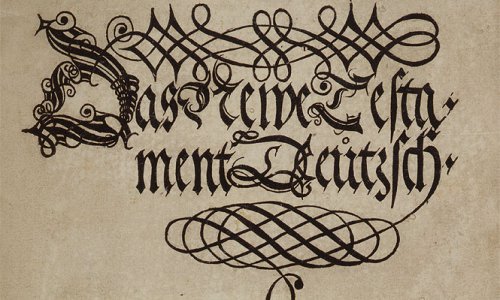 Das Newe Testa⸗
ment Deůtzsch⸗